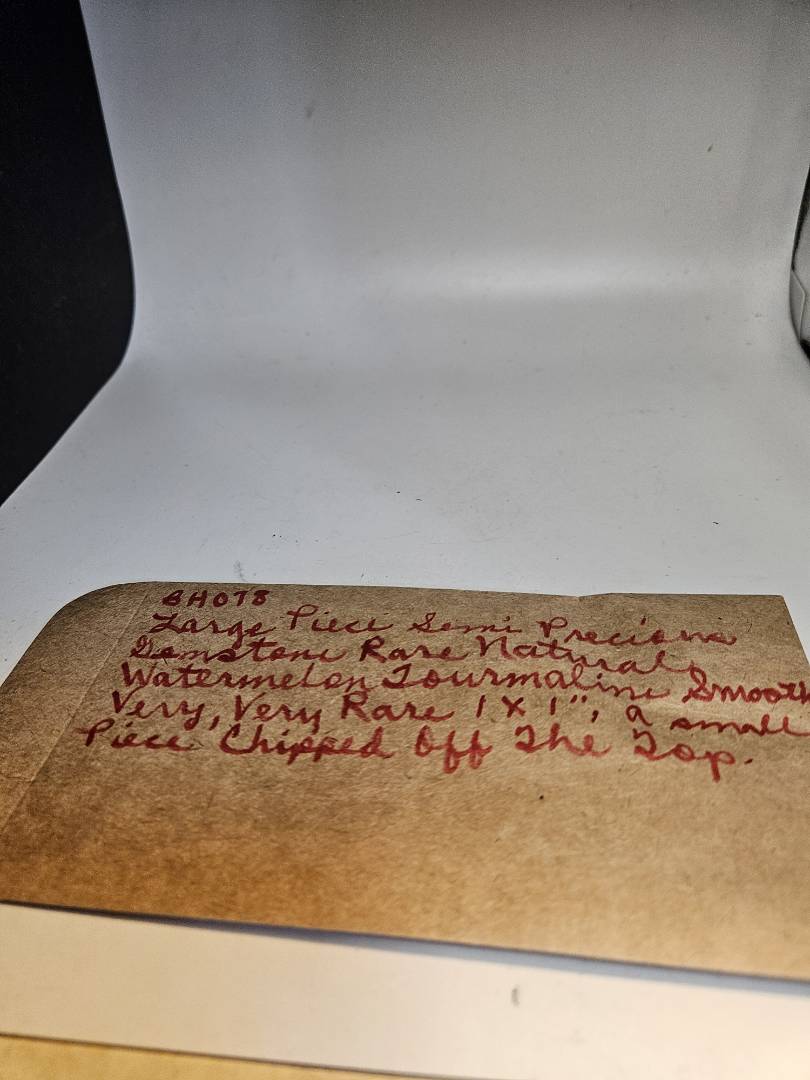 BH078
Large Piece Semi Precious
Gemstone Rare Natural
Watermelon Tourmaline Smooth
Very, Very Rare 1 x 1", a small
Piece Chipped Off The Top.